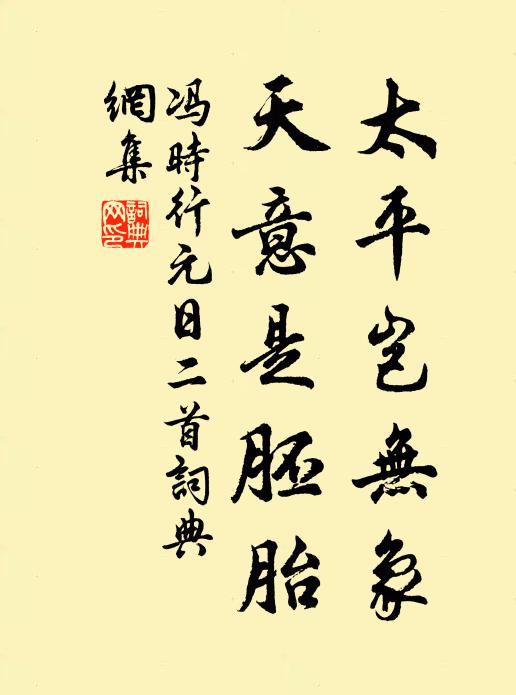 太平岂無象
天意是胚胎
冯時行元日二首詞典
網集
詞典
网印